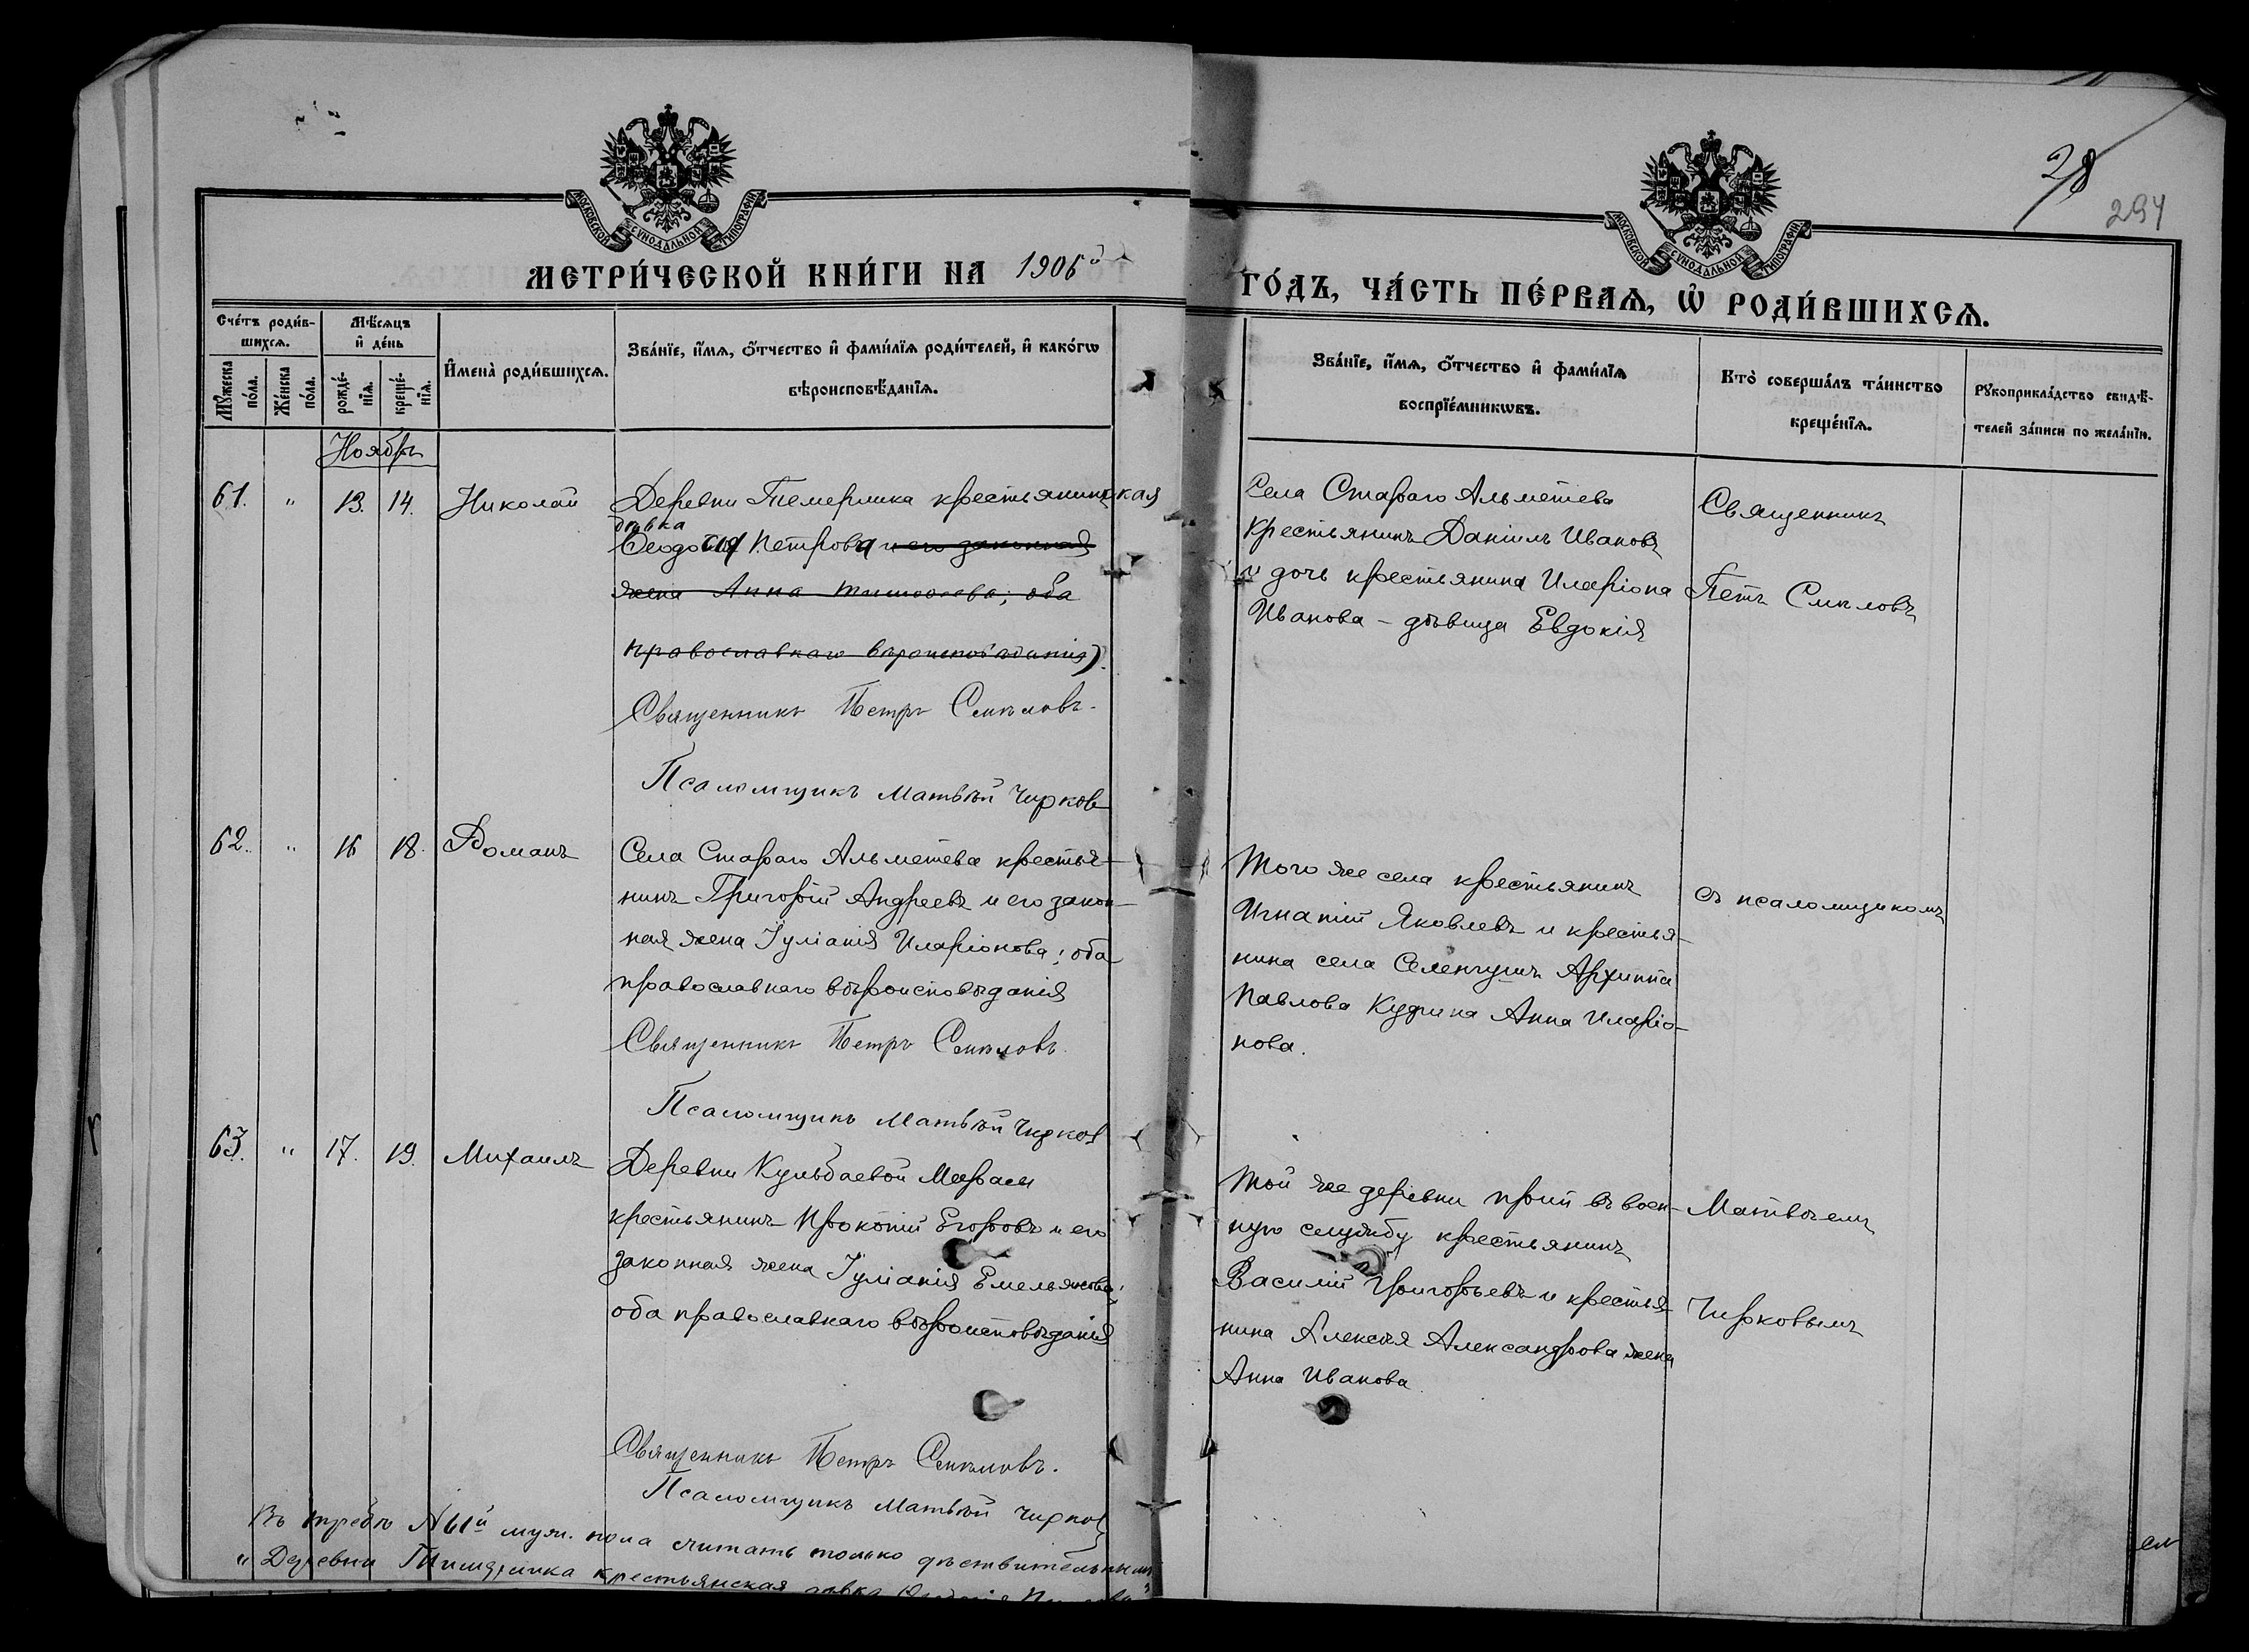 28
294
МОСКОВСКОЙ СУНОДАЛЬНОЙ ТИПОГРАФІИ
МОСКОВСКОЙ СУНОДАЛЬНОЙ ТИПОГРАФІИ
МЕТРИ́ЧЕСКОЙ КНИ́ГИ НА 1906й
ГО́ДЪ, ЧА́СТЬ ПЕ́РВАѦ, Ѽ РОДИ́ВШИХСѦ.
Сче́тъ роди́в-
шихсѧ.
Мꙋ́жеска по́ла.
Же́нска по́ла.
Мѣ́сѧцъ и҆ де́нь
рожде́-
нїѧ.
креще́-
нїѧ.
И҆мена̀ роди́вшихсѧ.
Зва́нїе, и҆́мѧ, ѻ҆́тчество и҆ фами́лїѧ роди́телей, и҆ како́гѡ
вѣроисповѣ́данїѧ.
Зва́нїе, и҆́мѧ, ѻ҆́тчество и҆ фами́лїѧ
воспрїе́мникѡвъ.
Кто̀ соверша́лъ та́инство
креще́нїѧ.
Рꙋкоприкла́дство свидѣ́-
телей за́писи по жела́нїю.
Ноябрь
61. " 13. 14. Николай
Деревни Темерлика крестьянская
дѣвка
Ѳеодосія Петрова и его законная
жена Анна Тимоѳеева; оба
православнаго вѣроисповѣданія).
Священникъ Петръ Смѣловъ.
Псаломщикъ Матвѣй Чирков
Села Стараго Альметева
крестьянинъ Даніилъ Ивановъ
и дочь крестьянина Иларіона
Иванова – дѣвица Евдокія
Священникъ
Петръ Смѣловъ
62. " 16 18. Романъ
Села Стараго Альметева крестья-
нинъ Григорій Андреевъ и его закон-
ная жена Іуліанія Иларіонова; оба
православнаго вѣроисповѣданія
Священникъ Петръ Смѣловъ.
Псаломщикъ Матвѣй Чирков
Того же села крестьянинъ
Игнатій Яковлевъ и крестья-
нина села Селенгушъ Архиппа
Павлова Кудрина Анна Иларіо-
нова.
съ псаломщикомъ
63. " 17. 19. Михаилъ
Деревни Кульбаевой Мараси
крестьянинъ Прокопій Егоровъ и его
законная жена Іуліанія Емельянова;
оба православнаго вѣроисповѣданія
Священникъ Петръ Смѣловъ.
Псаломщикъ Матвѣй Чирков
Той же деревни въ воен-
ную службу крестьянинъ
Василій Григорьевъ и крестья-
нина Алексѣя Александрова жена
Анна Иванова
Матвѣемъ
Чирковымъ
Въ требѣ №61й муж. пола считать только дѣствительнымъ
"Деревни крестьянская дѣвка